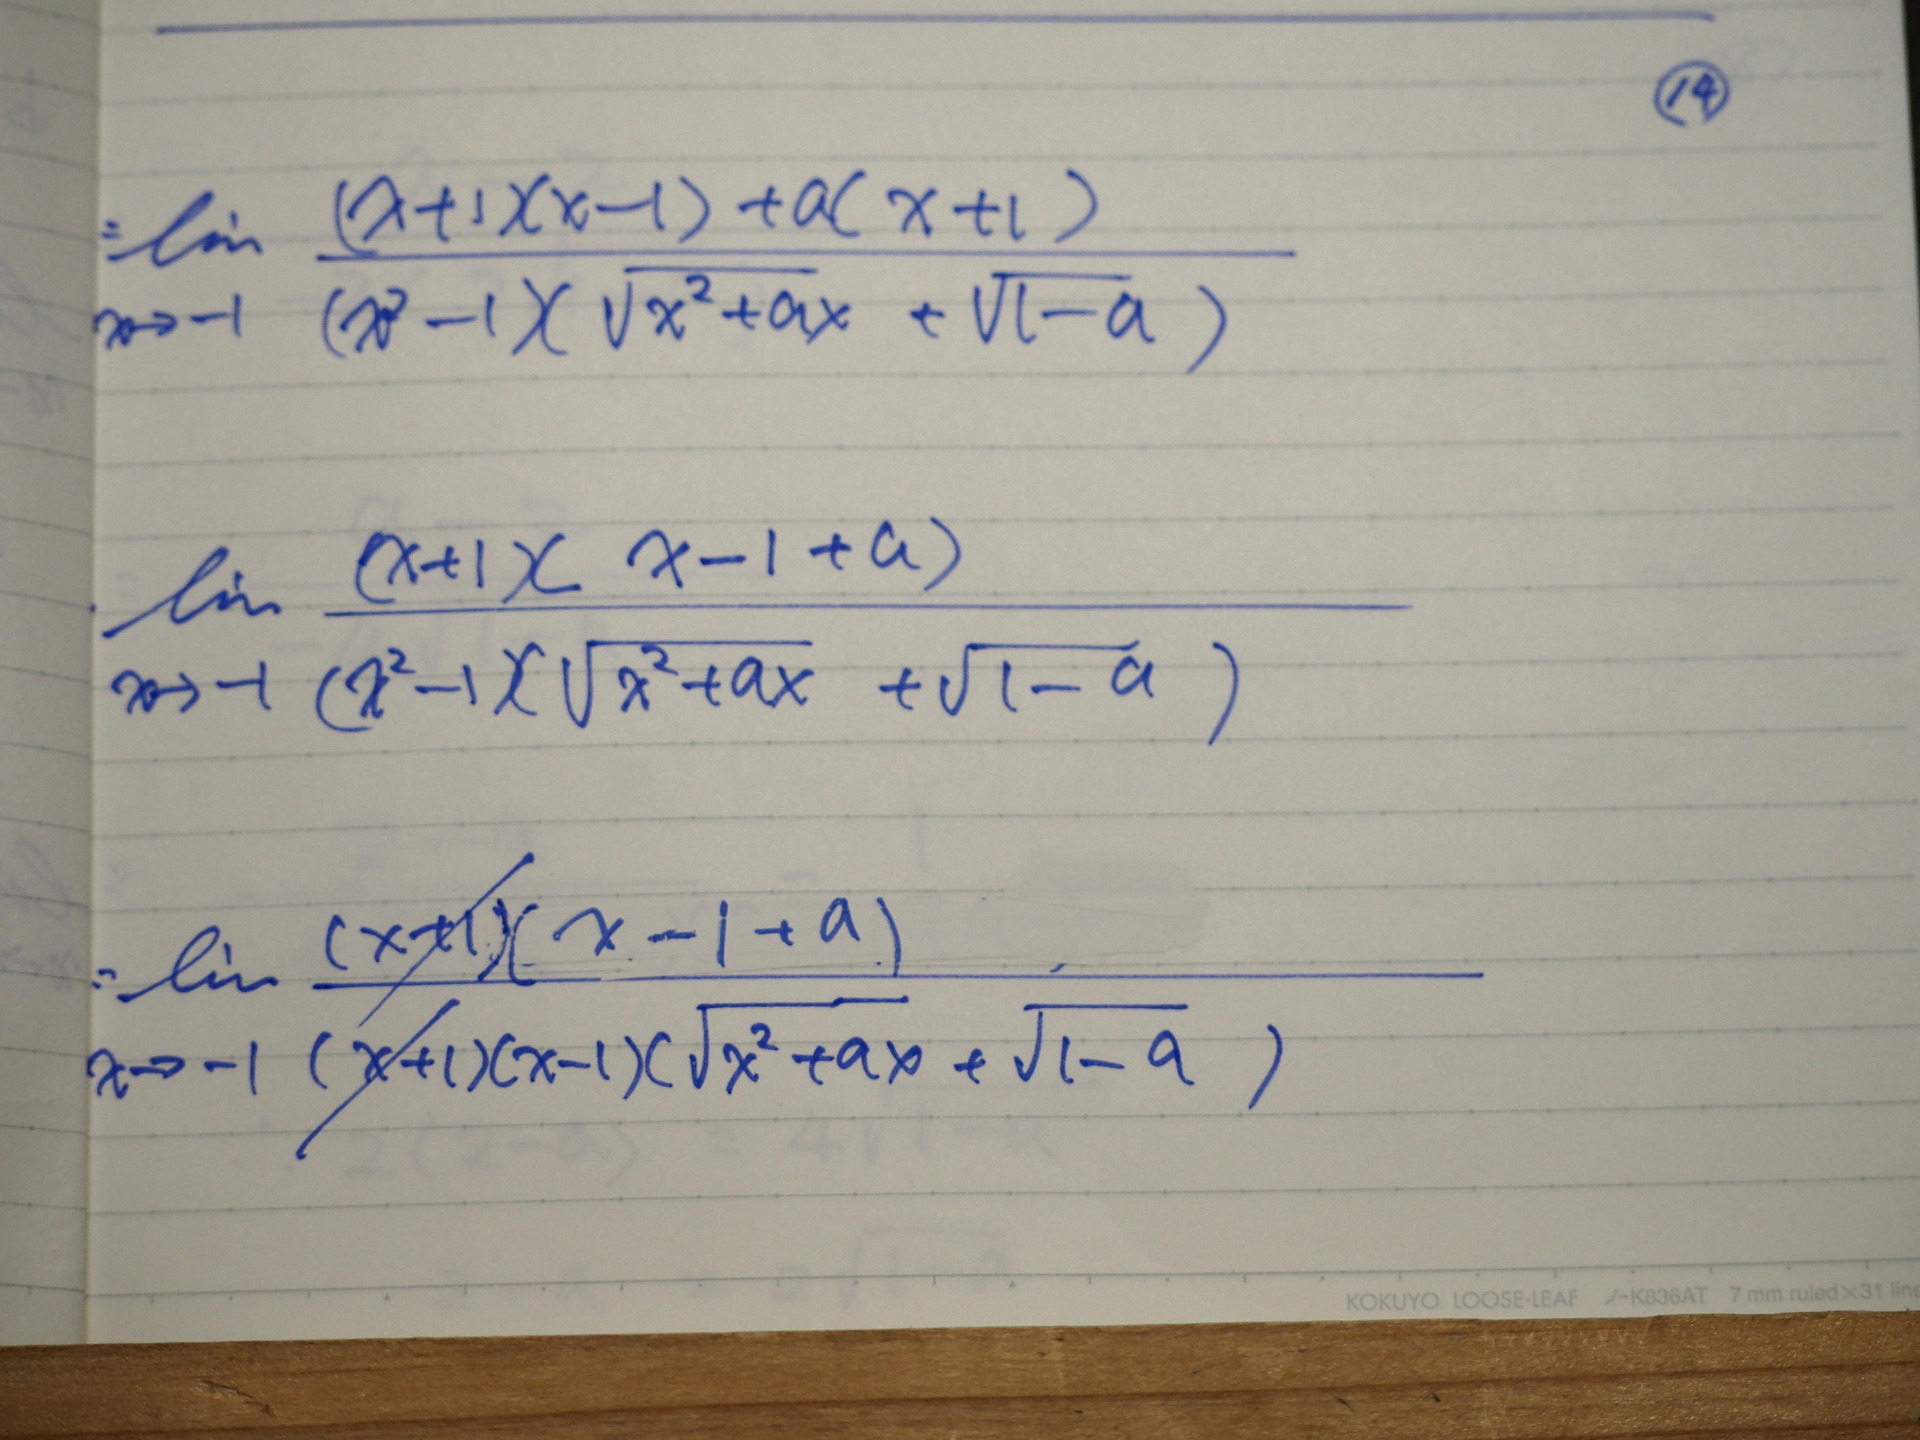 ⑭
= lim (x+1)(x-1)+a(x+1)
x→-1 (x²-1)(√x²+ax + √1-a)
lim (x+1)(x-1+a)
x→-1 (x²-1)(√x²+ax + √1-a)
= lim (x+1)(x-1+a)
x→-1 (x+1)(x-1)(√x²+ax + √1-a)
KOKUYO LOOSE-LEAF ノ-K836AT 7 mm ruled×31 line